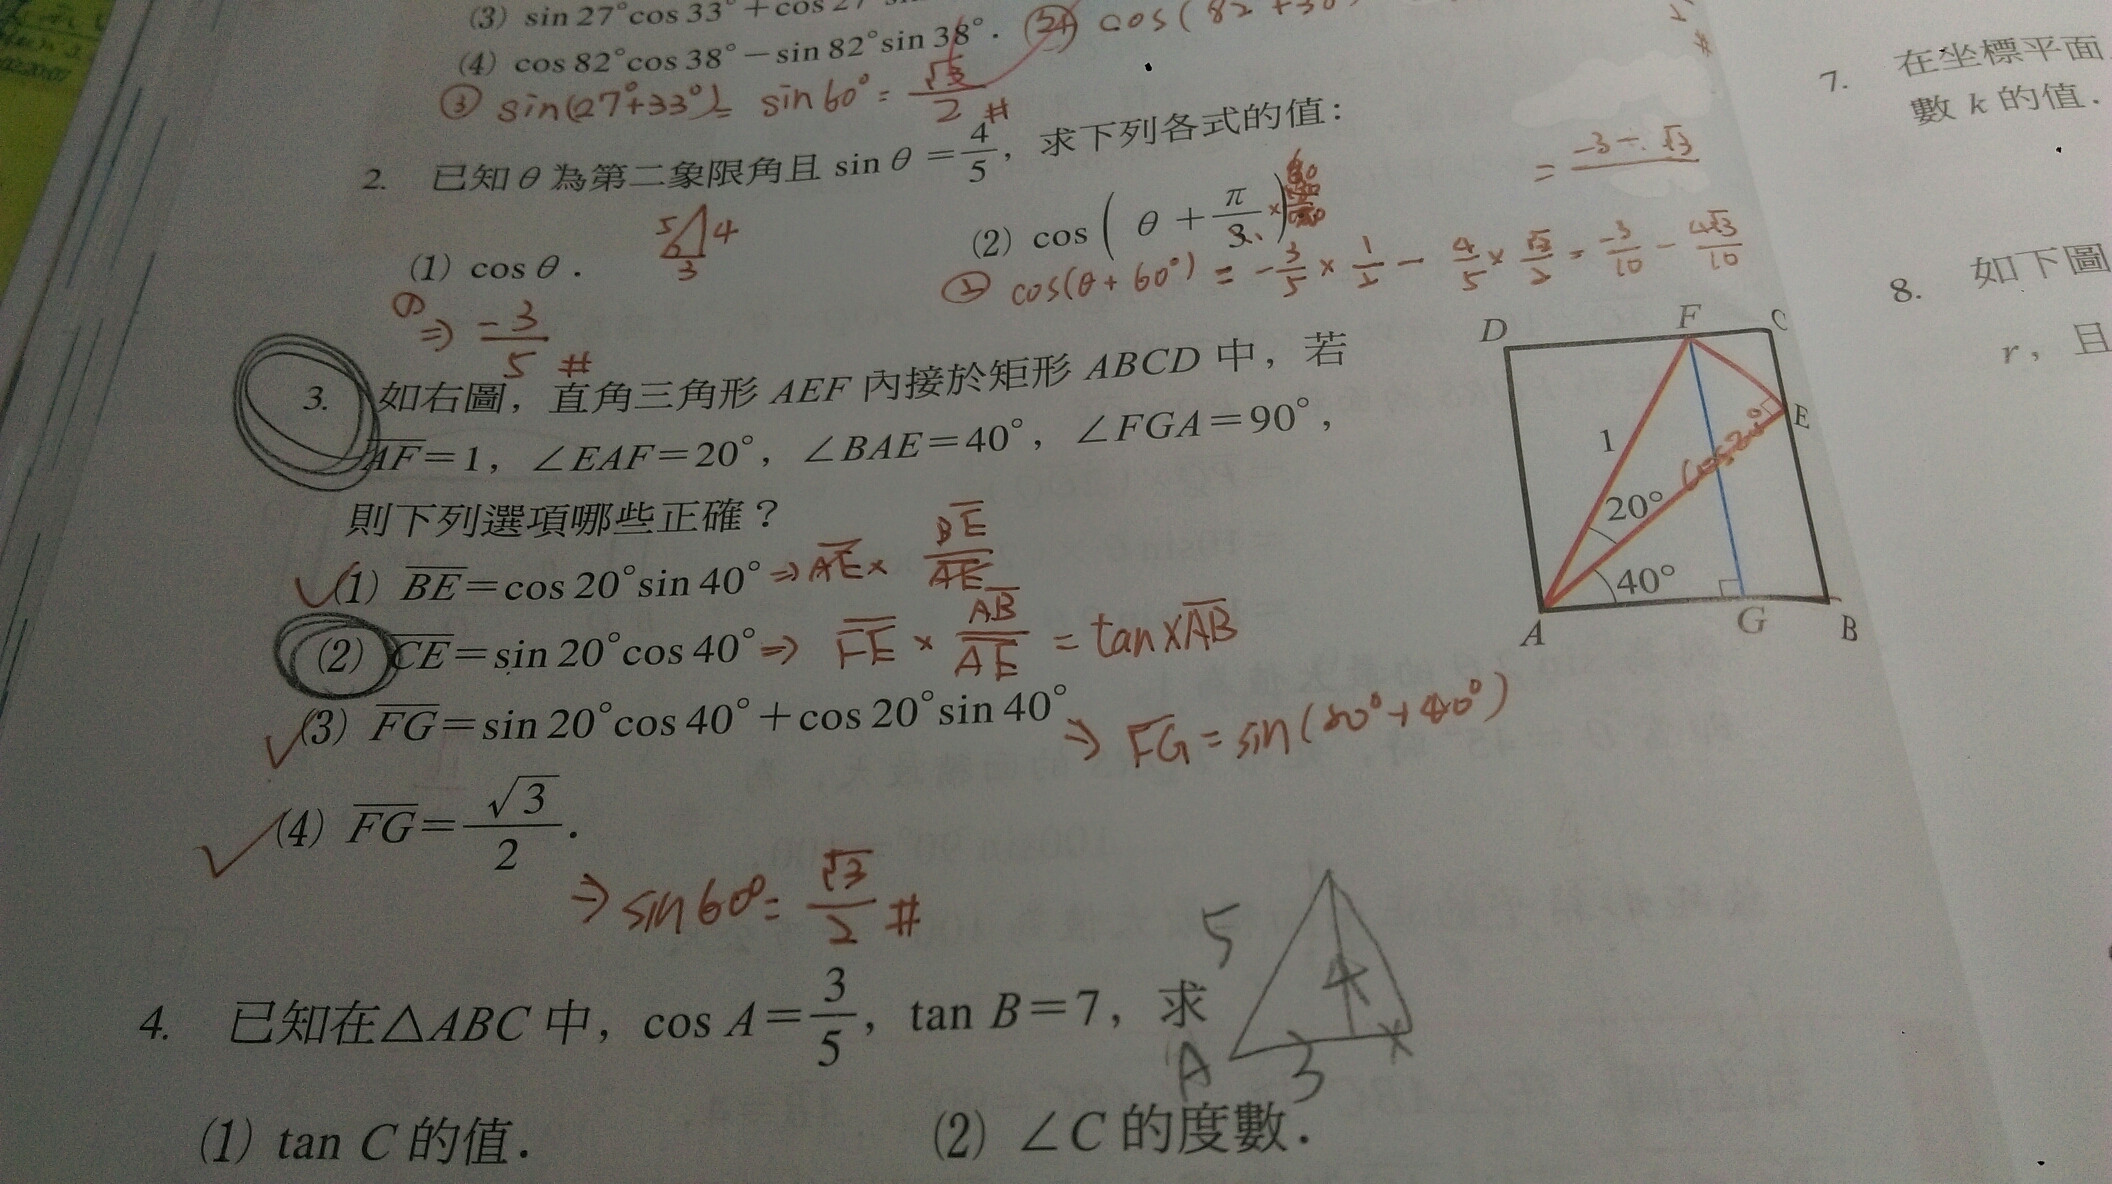 (3) sin 27°cos 33°+cos 27°
(4) cos 82°cos 38°−sin 82°sin 38°.
cos(82+38
③ sin(27°+33°)= sin60°= √3/2 #
2. 已知θ為第二象限角且 sin θ=4/5, 求下列各式的值：
5 4 3
(1) cos θ.
(2) cos(θ+π/3).
① ⇒ -3/5 #
② cos(θ+60°) = -3/5 × 1/2 − 4/5 × √3/2 = -3/10 − 4√3/10
3. 如右圖, 直角三角形 AEF 內接於矩形 ABCD 中, 若
AF=1, ∠EAF=20°, ∠BAE=40°, ∠FGA=90°,
則下列選項哪些正確？
(1) BE=cos 20°sin 40° ⇒ AE× BE/AE
(2) CE=sin 20°cos 40° ⇒ FE × AB/AE = tan×AB
(3) FG=sin 20°cos 40°+cos 20°sin 40° ⇒ FG = sin(20°+40°)
(4) FG=√3/2.
⇒ sin60°= √3/2 #
D F C
E
1
cos20°
20°
40°
A G B
4. 已知在△ABC 中, cos A=3/5, tan B=7, 求
5 4
A 3
(1) tan C 的值.
(2) ∠C 的度數.
7. 在坐標平面
數 k 的值.
8. 如下圖
r, 且